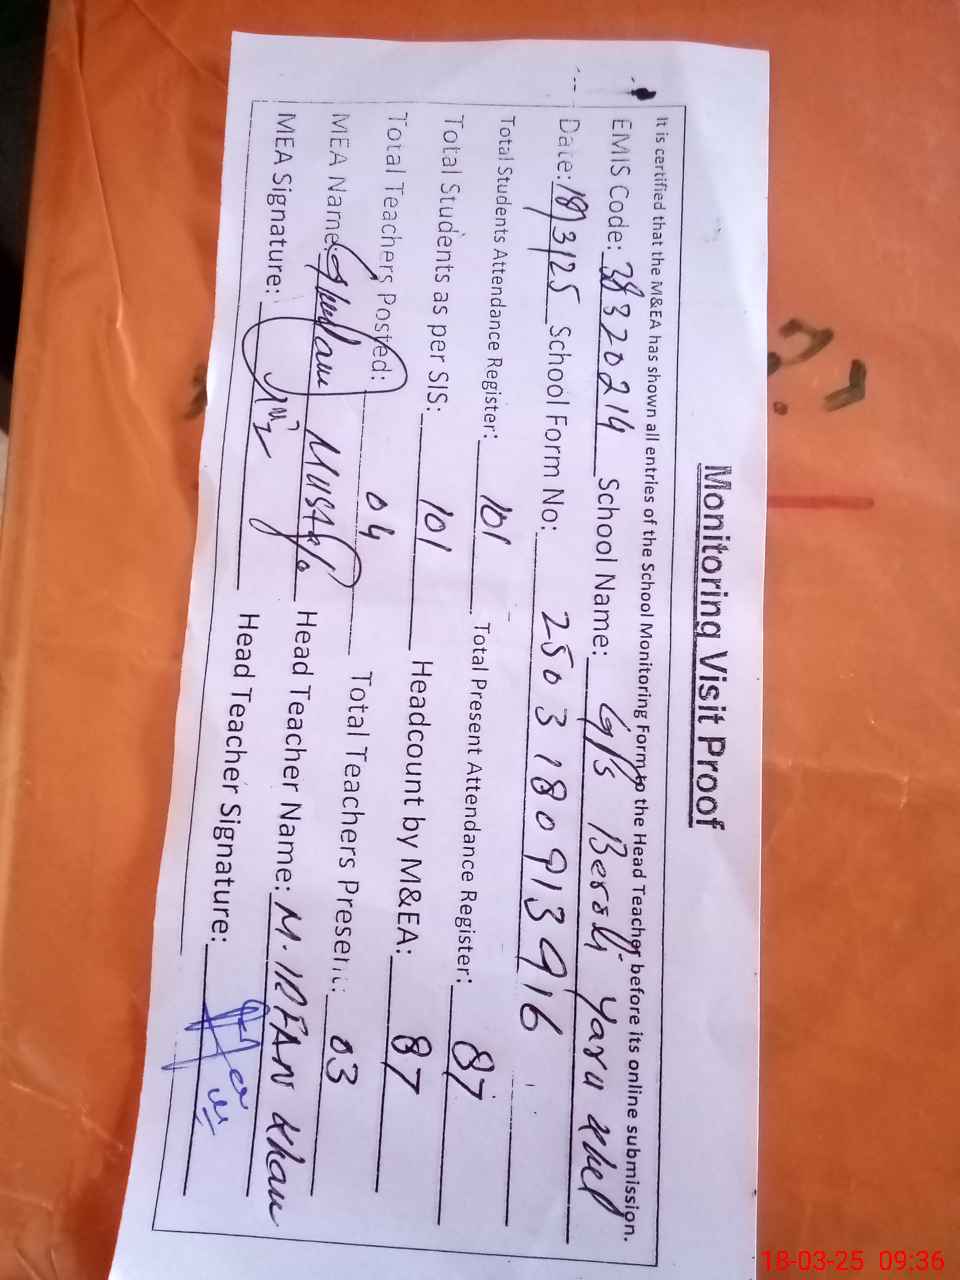 Monitoring Visit Proof
It is certified that the M&EA has shown all entries of the School Monitoring Form to the Head Teacher before its online submission.
EMIS Code: 38320214 School Name: G/s Beroli Yaru Khel
Date: 18/3/25 School Form No: 2503180913916
Total Students Attendance Register: 101 Total Present Attendance Register: 87
Total Students as per SIS: 101 Headcount by M&EA: 87
Total Teachers Posted: 04 Total Teachers Present: 03
MEA Name: Ghulam Mustafa Head Teacher Name: M. IRFAN Khan
MEA Signature: Head Teacher Signature:
18-03-25 09:36